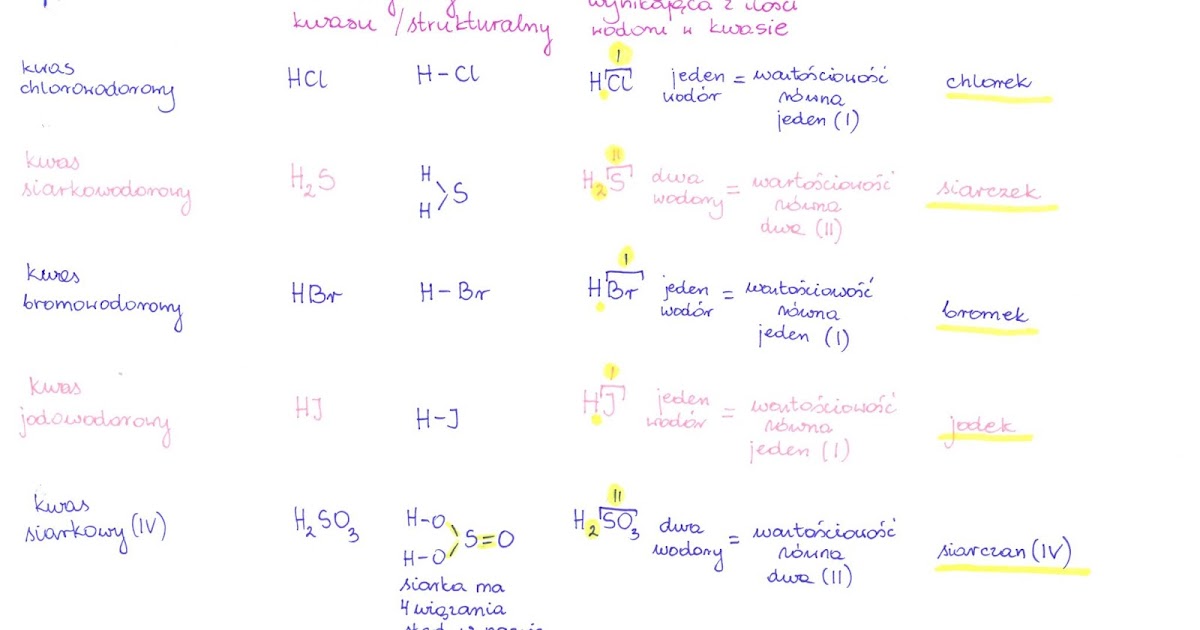 kwasu /strukturalny
wynikająca z ilości
wodoru w kwasie
kwas
chlorowodorowy
HCl
H-Cl
I
HCl
jeden = wartościowość
wodór równa
jeden (I)
chlorek
kwas
siarkowodorowy
H₂S
H
S
H
II
H₂S
dwa = wartościowość
wodory równa
dwa (II)
siarczek
kwas
bromowodorowy
HBr
H-Br
I
HBr
jeden = wartościowość
wodór równa
jeden (I)
bromek
kwas
jodowodorowy
HJ
H-J
I
HJ
jeden = wartościowość
wodór równa
jeden (I)
jodek
kwas
siarkowy (IV)
H₂SO₃
H-O
S=O
H-O
siarka ma
4 wiązania
II
H₂SO₃
dwa = wartościowość
wodory równa
dwa (II)
siarczan (IV)